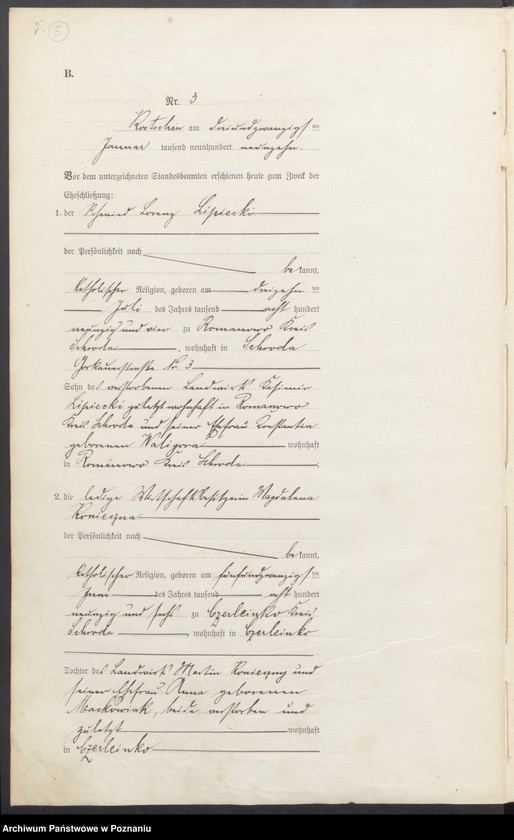 5. 5
B.
Nr. 3
Kostschin am dreiundzwanzigsten
Januar tausend neunhundert neunzehn.
Vor dem unterzeichneten Standesbeamten erschienen heute zum Zweck der
Eheschließung:
1. der Schmied Lorenz Lipiecki
der Persönlichkeit nach
bekannt,
katholischer Religion, geboren am dreizehnten
Juli des Jahres tausend acht hundert
neunzig und vier zu Romanowo Kreis
Schroda, wohnhaft in Schroda
Nr. 3
Sohn des verstorbenen Landwirts Kasimir
Lipiecki zuletzt wohnhaft in Romanowo
Kreis Schroda und seiner Ehefrau Konstantia
geborenen Waligora wohnhaft
in Romanowo Kreis Schroda.
2. die ledige Wirtschaftsbesitzerin Magdalena
Konieczna
der Persönlichkeit nach
bekannt,
katholischer Religion, geboren am fünfundzwanzigsten
Juni des Jahres tausend acht hundert
neunzig und sechs zu Czerleinko Kreis
Schroda, wohnhaft in Czerleinko
Tochter des Landwirts Martin Konieczny und
seiner Ehefrau Anna geborenen
Mackowiak, beide verstorben und
zuletzt wohnhaft
in Czerleinko
Archiwum Państwowe w Poznaniu